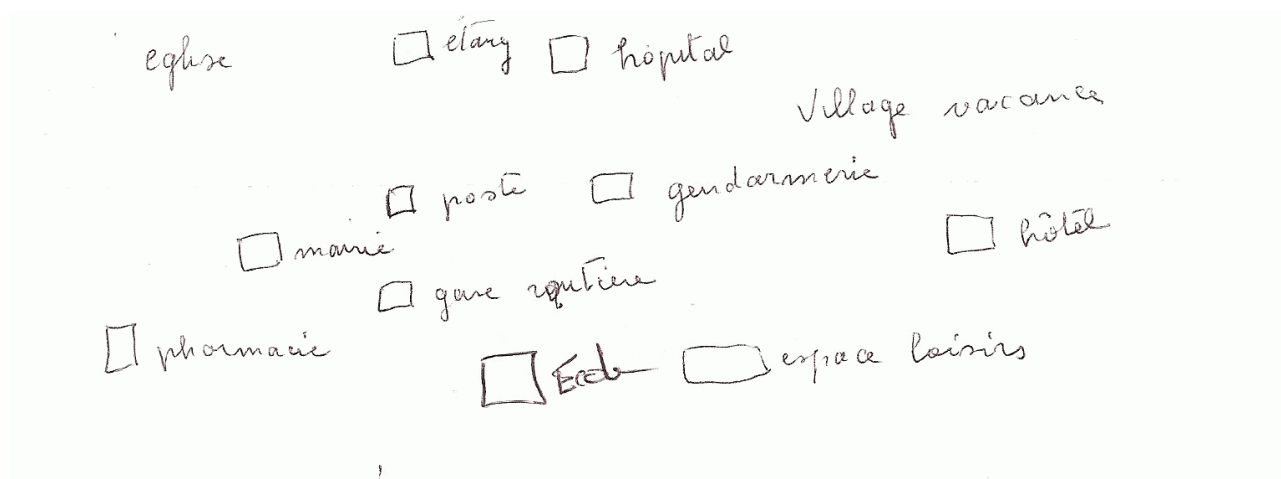 eglise étang hôpital
Village vacance
poste gendarmerie
mairie hôtel
gare routière
pharmacie Ecole espace loisirs